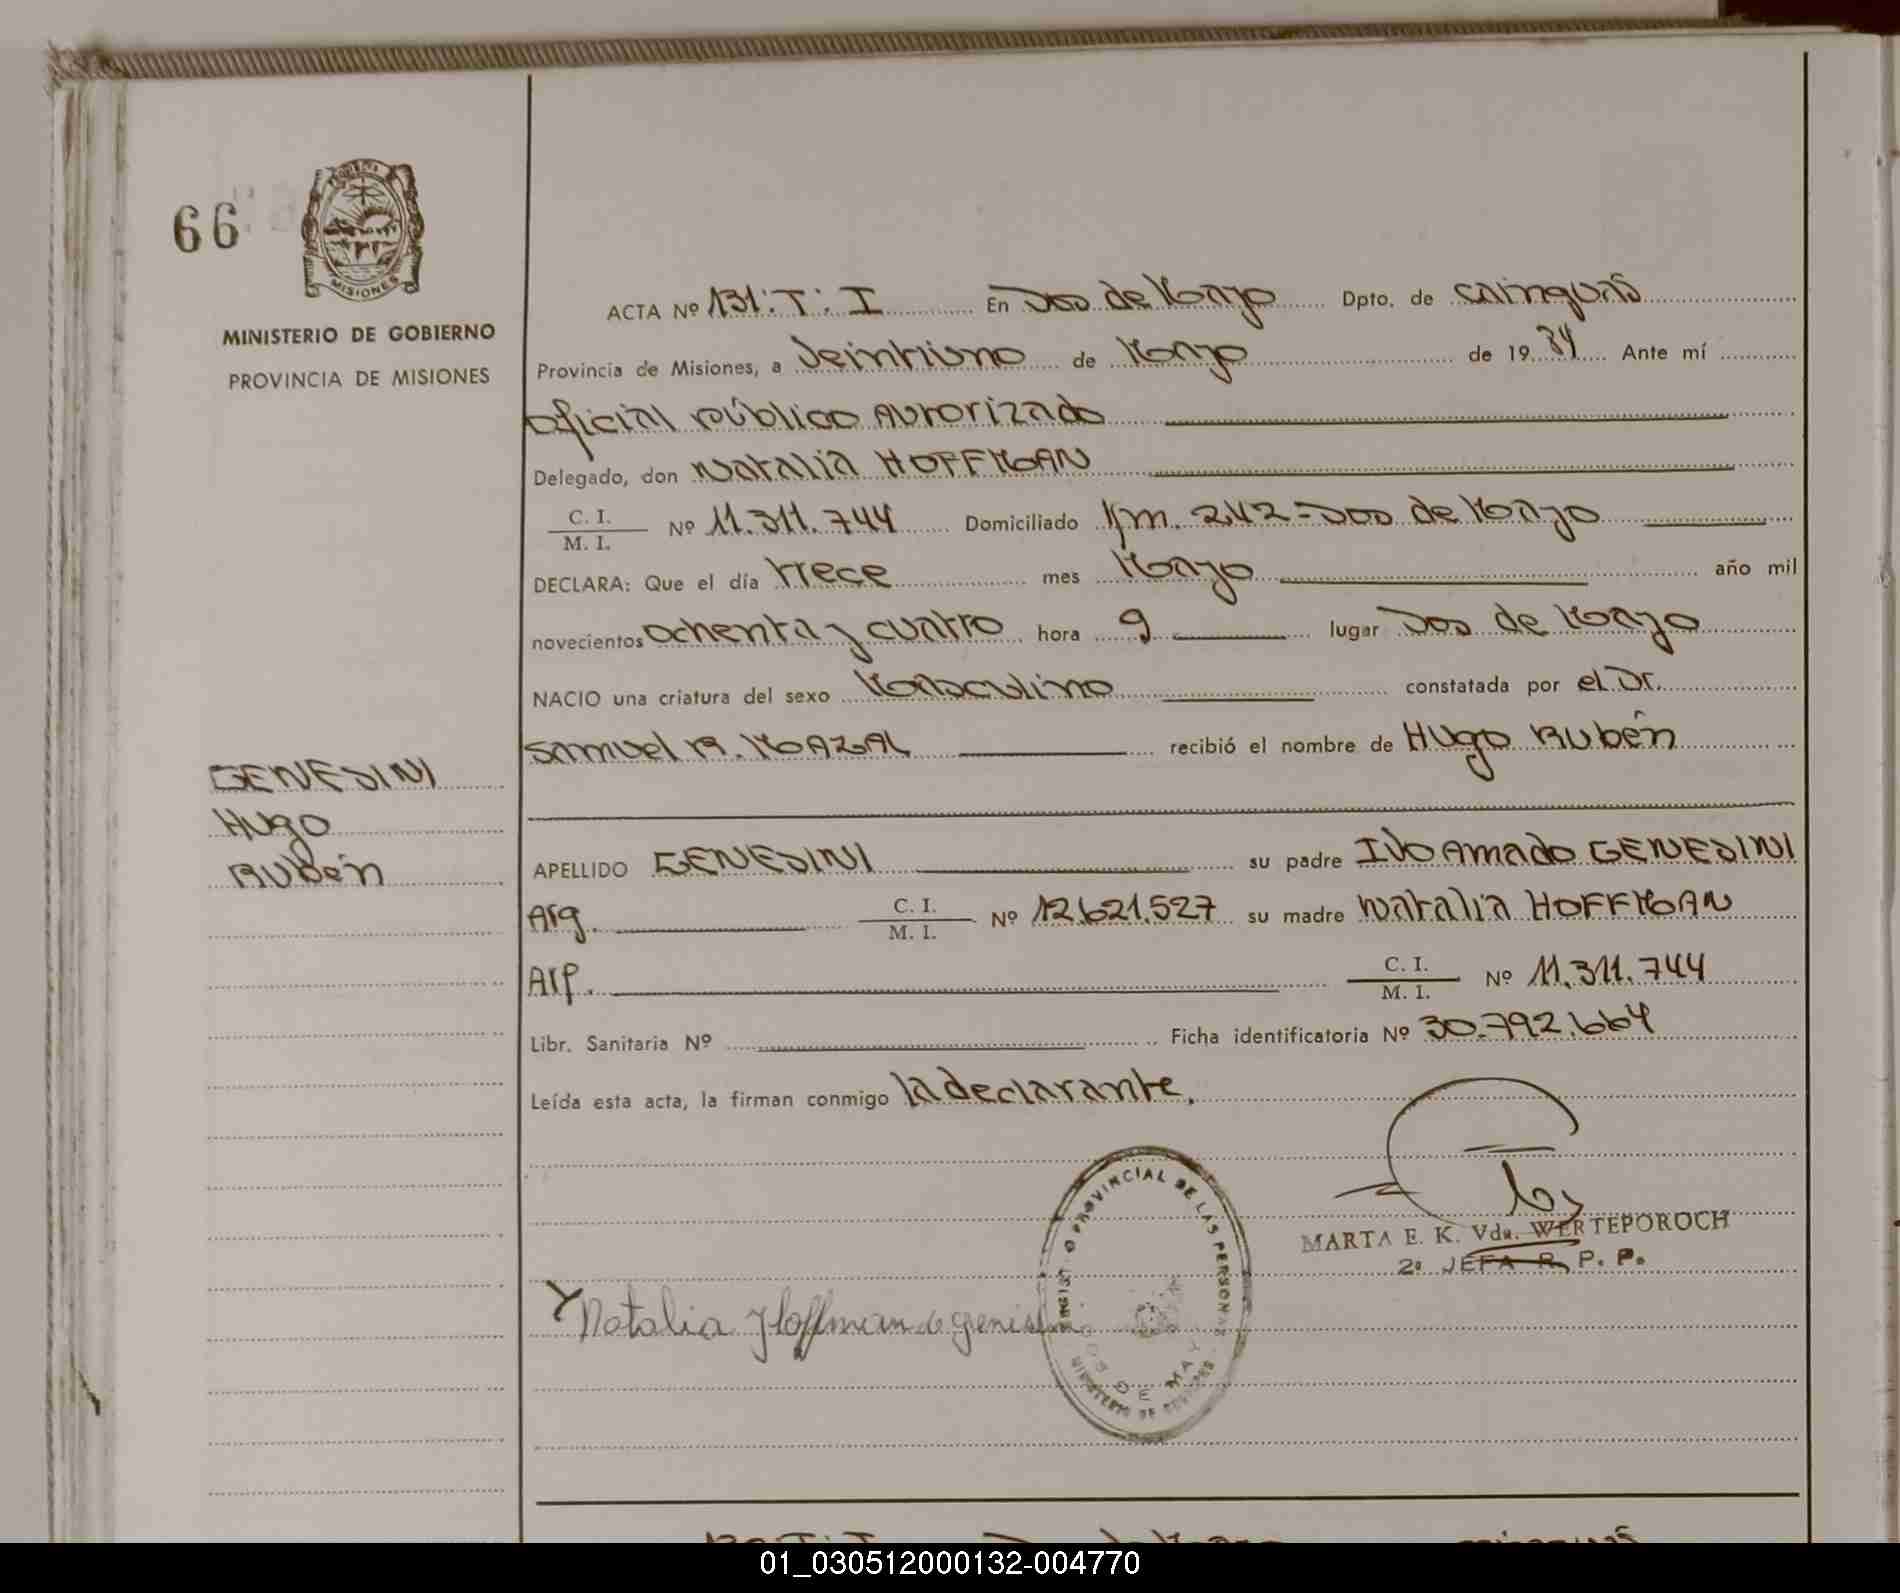 66
MISIONES
MINISTERIO DE GOBIERNO
PROVINCIA DE MISIONES
GENESINI
Hugo
Rubén
ACTA Nº 131: T: I En Dos de Mayo Dpto. de Cainguás
Provincia de Misiones, a Veintiuno de Mayo de 1984 Ante mí
Oficial público Autorizado
Delegado, don Natalia HOFFMAN
C. I.
M. I. Nº 11.311.744 Domiciliado Km. 242=Dos de Mayo
DECLARA: Que el día trece mes Mayo año mil
novecientos ochenta y cuatro hora 9 lugar Dos de Mayo
NACIO una criatura del sexo Masculino constatada por el Dr.
Samuel R. MAZAL recibió el nombre de Hugo Rubén
APELLIDO GENESINI su padre Ivo Amado GENESINI
Arg. C. I.
M. I. Nº 12.621.527 su madre Natalia HOFFMAN
Arg. C. I.
M. I. Nº 11.311.744
Libr. Sanitaria Nº Ficha identificatoria Nº 30.792.664
Leída esta acta, la firman conmigo la declarante.
PROVINCIAL DE LAS PERSONAS
DOS DE MAYO
MINISTERIO DE GOBIERNO
MARTA E. K. Vda. WERTEPOROCH
2º JEFA R. P. P.
Natalia Hoffman de Genesini
01_030512000132-004770